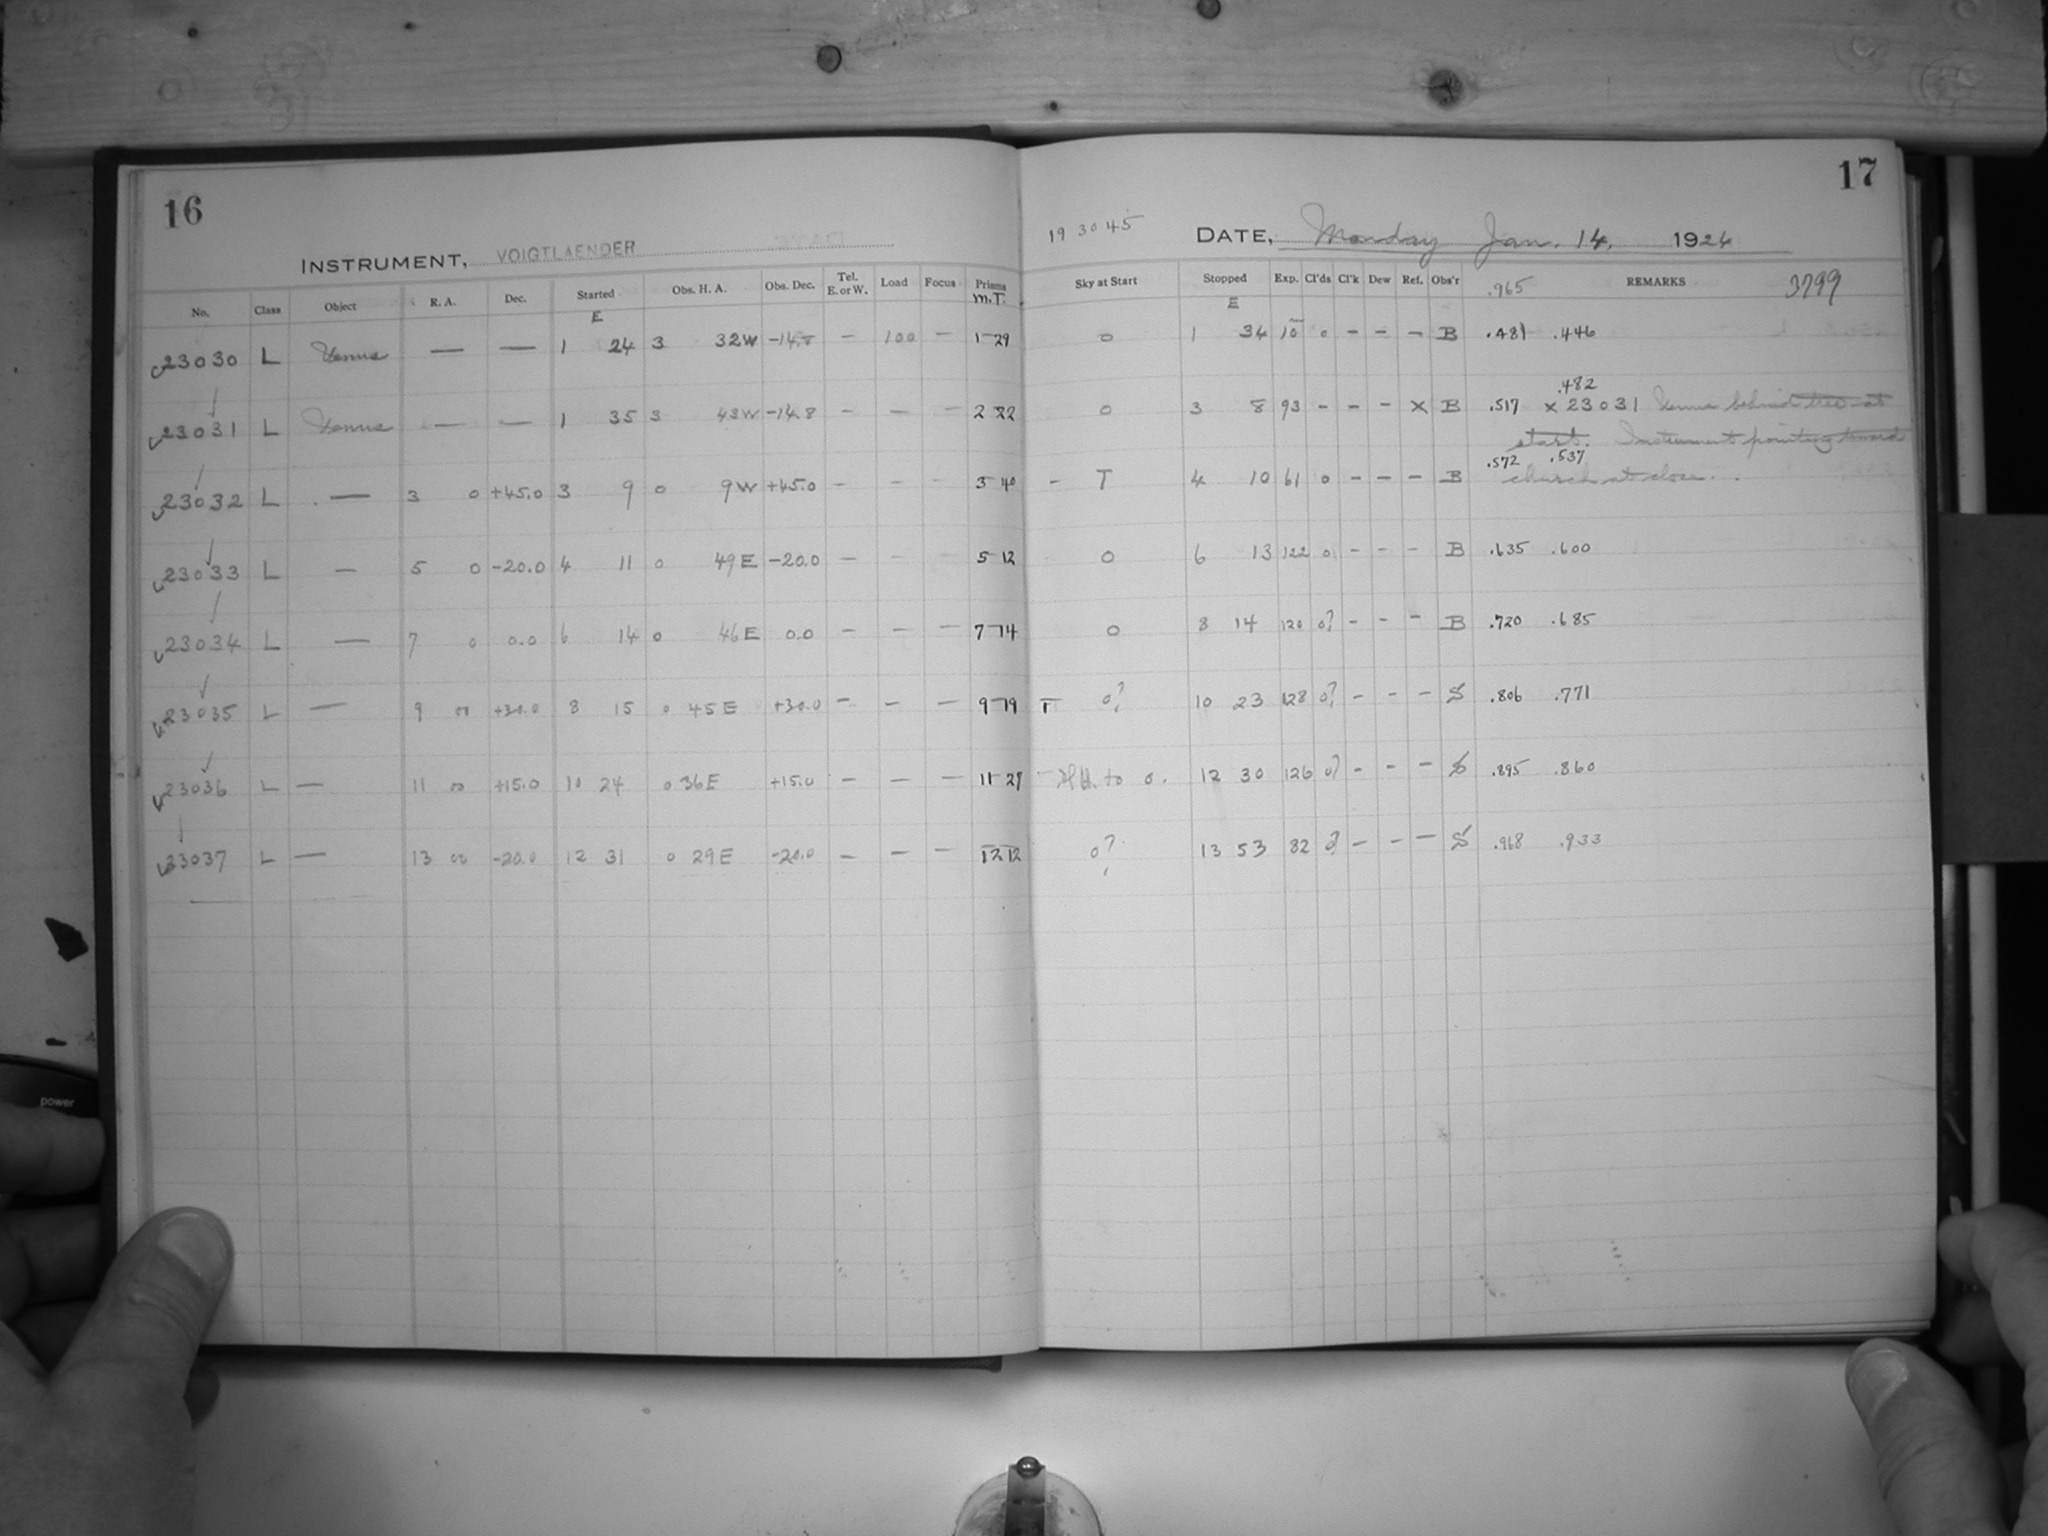 16
INSTRUMENT, VOIGTLAENDER
No. Class Object R. A. Dec. Started Obs. H. A. Obs. Dec. Tel. E. or W. Load Focus Prisms
E M.T.
23030 L Venus — — 1 24 3 32W -14.8 — 100 — 1 29
23031 L Venus — — 1 35 3 43W -14.8 — — — 2 22
23032 L — 3 0 +45.0 3 9 0 9W +45.0 — — — 3 40
23033 L — 5 0 -20.0 4 11 0 49E -20.0 — — — 5 12
23034 L — 7 0 0.0 6 14 0 46E 0.0 — — — 7 14
23035 L — 9 00 +30.0 8 15 0 45E +30.0 — — — 9 19
23036 L — 11 00 +15.0 10 24 0 36E +15.0 — — — 11 27
23037 L — 13 00 -20.0 12 31 0 29E -20.0 — — — 13 12
17
19 30 45 DATE, Monday Jan. 14, 1924
Sky at Start Stopped Exp. Cl'ds Cl'k Dew Ref. Obs'r .965 REMARKS 3799
E
0 1 34 10 0 — — — B .481 .446
.482
0 3 8 93 - - - X B .517 x 23031 Venus behind tree at
start. Instrument pointing toward
.572 .537
- T 4 10 61 0 - - - B church at close.
0 6 13 122 0 - - - B .635 .600
0 8 14 120 0? - - - B .720 .685
T 0? 10 23 128 0? - - - S .806 .771
to 0. 12 30 126 0? - - - S .895 .860
0? 13 53 82 0? - - - S .968 .933
power